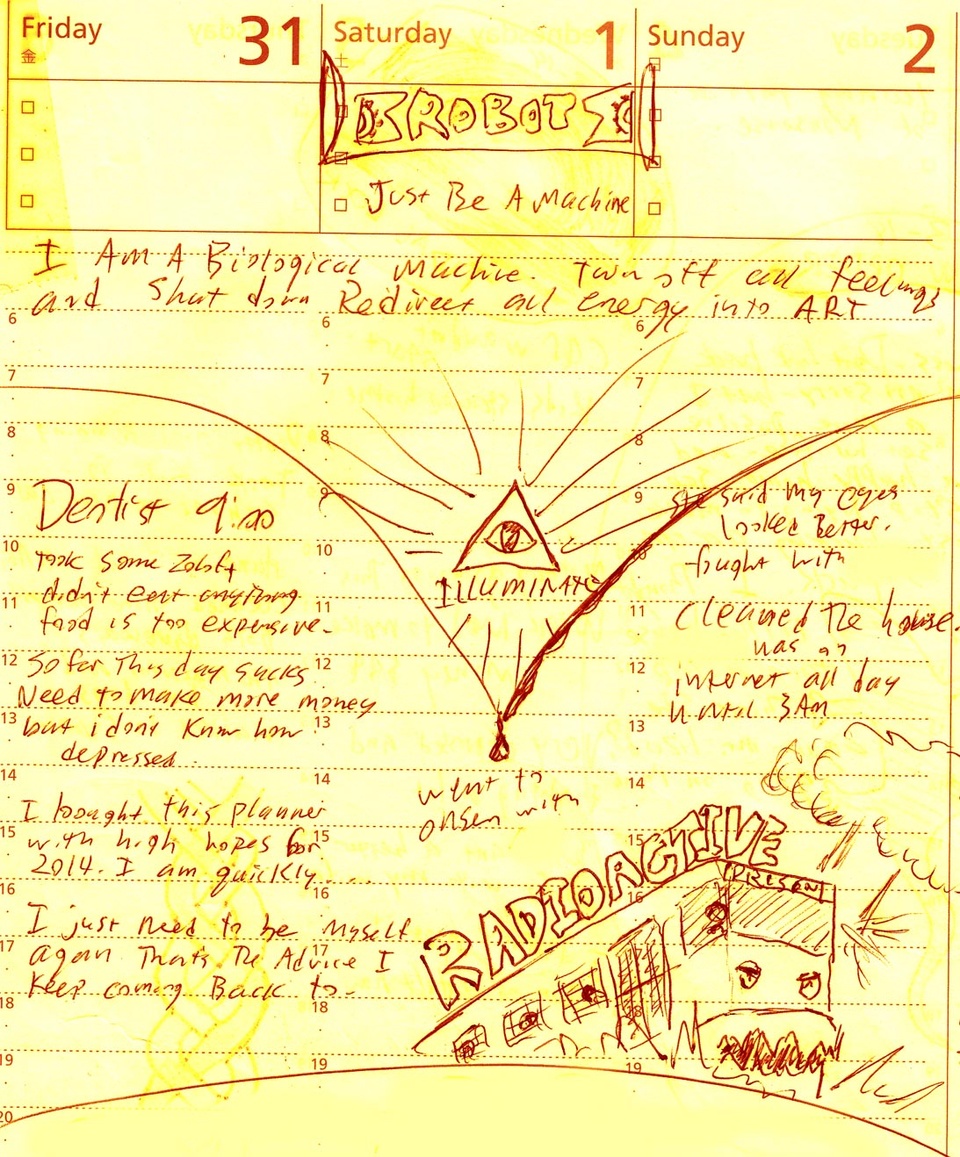 Friday 31
金
Saturday 1
土
Sunday 2
ROBOT
Just Be A Machine
I Am A Biological Machine. Turn off all feelings
and Shut down Redirect all energy into ART
6 6 6
7 7 7
8 8 8
9 9 9
10 10 10
11 11 11
12 12 12
13 13 13
14 14 14
15 15 15
16 16
17 17
18 18 18
19 19 19
20
Dentist 9:00
took some Zoloft
didn't eat anything
food is too expensive.
So far This day sucks
Need to make more money
but i don't know how
depressed.
I bought this planner
with high hopes for
2014. I am quickly....
I just need to be Myself
again That's The Advice I
Keep coming Back to.
ILLUMINATI
went to
onsen with
she said my eyes
looked Better.
fought with
cleaned The house.
was on
internet all day
until 3AM
RADIOACTIVE
PRISON